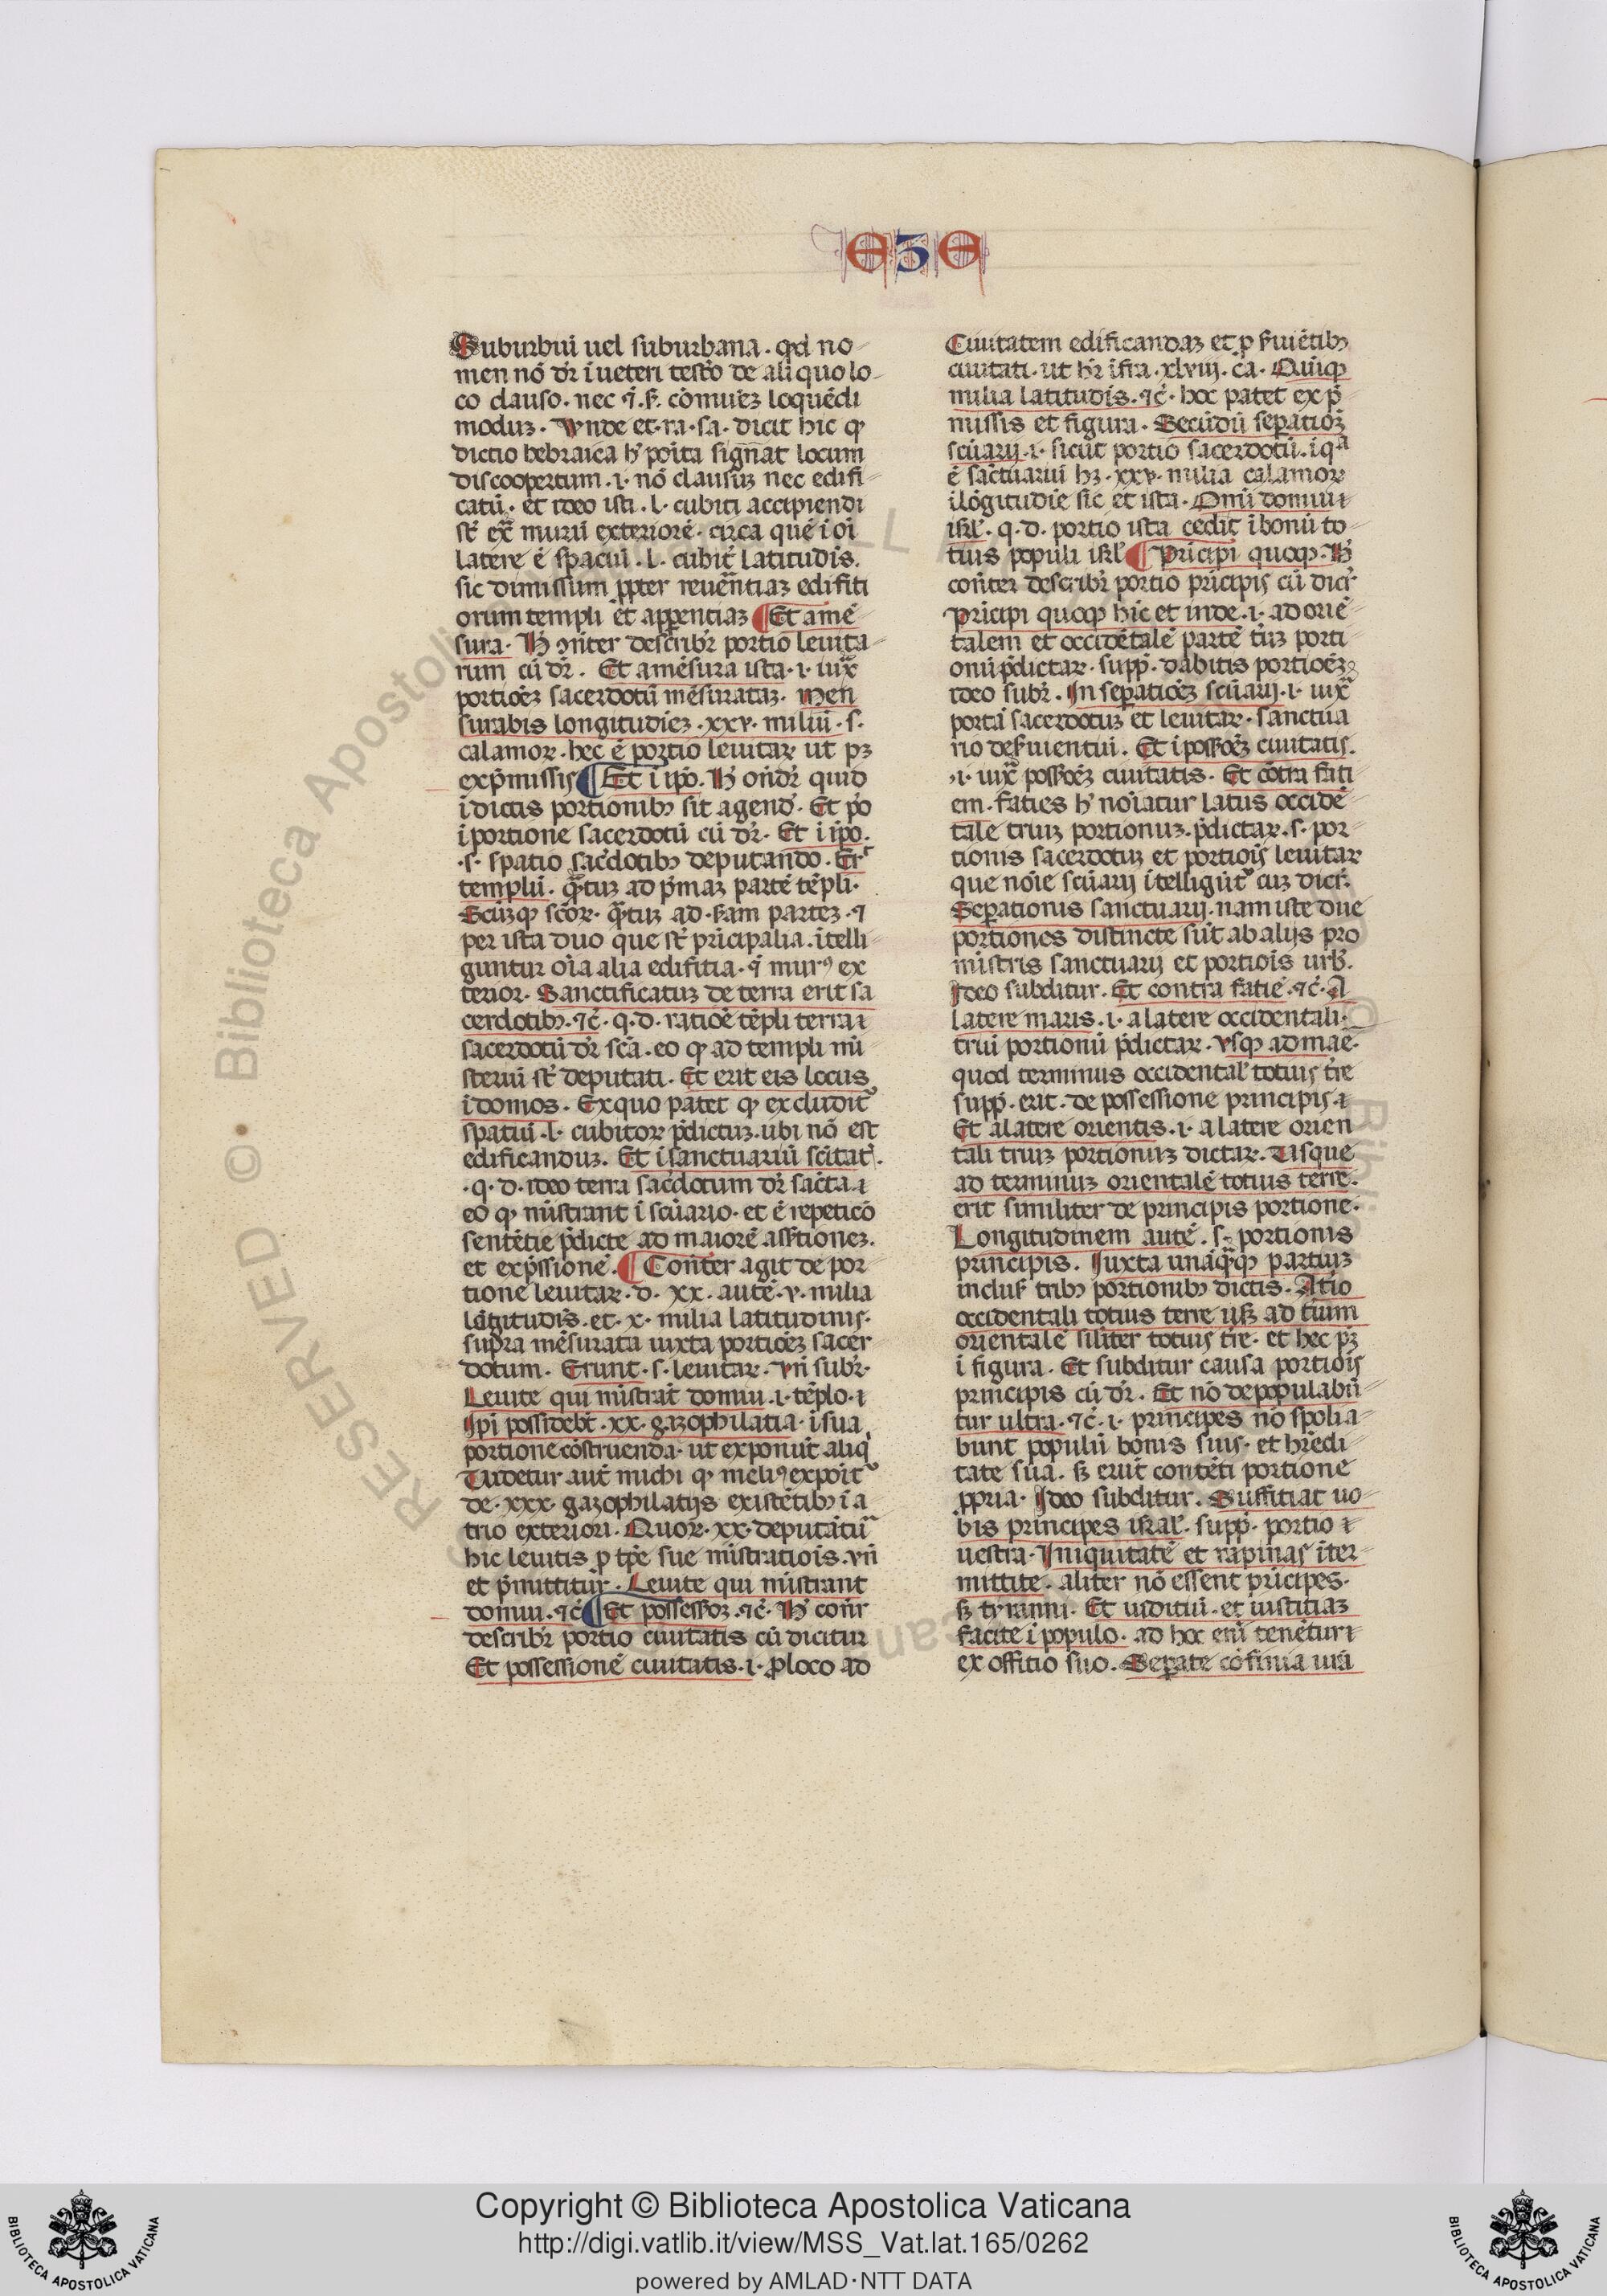 EZE
Suburbiū uel suburbana. qd no
men nō dr̄ i ueteri testō de aliquo lo
co clauso. nec ē. s. cōmuēʒ loquēdi
moduʒ. Vnde et. ra. sa. dicit hic qꝫ
dictio hebraica h̄ poita signāt locum
discoopertum. i. nō clausuʒ nec edifi
catū. et ideo isti. l. cubiti accipiendi
st̄ ex̄ murū exteriorē. circa quē i oi
latere ē spaciū. l. cubit̄ latitudis.
sic dimissum ꝓpter reuētiaʒ edifiti
orum templi et appentiaʒ ¶ Et a mē
sura. H̄ ɔn̄ter describr̄ portio leuita
rum cū dr̄. Et a mēsura ista. i. iux̄
portiōeʒ sacerdotū mēsurataʒ. Men
surabis longitudieʒ. xxv. miliū. s.
calamoꝝ. hec ē portio leuitaꝝ ut pʒ
ex p̄missis ¶ Et i ip̄o. H̄ on̄dr̄ quid
i dictis portionibꝫ sit agend̄. Et p̄o
i portione sacerdotū cū dr̄. Et i ip̄o.
.s. spatio sac̄dotibꝫ deputando. Er̄t
templū. q̄tuʒ ad p̄maʒ partē tēpli.
Scūʒqꝫ sc̄oꝝ. q̄tuʒ ad s̄am parteʒ. ⁊
per ista duo que st̄ pricipalia. itelli
guntur oīa alia edifitia. ⁊ murꝰ ex
terior. Sanctificatuʒ de terra erit sa
cerdotibꝫ. ⁊c̄. q. d. ratiōe tēpli terra
sacerdotū dr̄ sc̄a. eo qꝫ ad templi mi
steriū st̄ deputati. Et erit eis locus
i domos. Ex quo patet qꝫ excludit̄
spatiū. l. cubitoꝝ p̄dictuʒ. ubi nō est
edificanduʒ. Et i sanctuariū sc̄itat̄.
.q. d. ideo terra sac̄dotum dr̄ sacta
eo qꝫ mīstrant i sc̄uario. et ē repeticō
sentētie p̄dicte ad maiorē assertioneʒ.
et exp̄ssionē. ¶ Con̄ter agit de por
tione leuitaꝝ. d. xx. autē. v. milia
lōgitudis. et. x. milia latitudinis.
supra mēsurata iuxta portiōeʒ sacer
dotum. Erunt. s. leuitaꝝ. vn̄ subr̄.
Leuite qui mīstrāt domui. i. tēplo.
Ipi possidebt̄. xx. gazophilatia. i sua
portione cōstruenda. ut exponūt aliq̄
Uidetur aut̄ michi qꝫ meliꝰ expoit̄
de. xxx. gazophilatijs existētibꝫ i a
trio exteriori. Quoꝝ. xx. deputātū
hic leuitis ꝓ tp̄e sue mīstratiois. vn̄
et p̄mittitur. Leuite qui mīstrant
domui. ⁊c̄ ¶ Et possessioʒ. ⁊c̄. H̄ con̄r
describr̄ portio ciuitatis cū dicitur
Et possessionē ciuitatis. i. ꝓ loco ad
Ciuitatem edificandaʒ et ꝓ s̄uiētibꝫ
ciuitati. ut hr̄ ifra. xlviij. ca. Quiqꝫ
milia latitudis. ⁊c̄. hoc patet ex p̄
missis et figura. Secūdū sepatioʒ
sc̄uarij. i. sicut portio sacerdotū. i qª
ē sactuariū hʒ. xxv. milia calamoꝝ
i lōgitudie sic et ista. Omi domui
isrl̄. q. d. portio ista cedit i bonū to
tius populi isrl̄ ¶ Pricipi quoqꝫ. H̄
con̄ter describr̄ portio pricipis cū dicr̄
Pricipi quoqꝫ hic et inde. i. ad oriē
talem et occidētalē partē triʒ porti
onū p̄dictaꝝ. supp̄. dabitis portiōeʒ
ideo subr̄. In sepatiōeʒ sc̄uarij. i. iux̄
portī sacerdotuʒ et leuitaꝝ. sanctua
rio des̄uientiū. Et i possoeʒ ciuitatis.
.i. iux̄ possoeʒ ciuitatis. Et cōtra fati
em. faties h̄ noīatur latus occidē
tale triuʒ portionuʒ. p̄dictaꝝ. s. por
tionis sacerdotuʒ et portiois leuitaꝝ
que noīe sc̄uarij itelligūt̄ cuʒ dicr̄.
Sepationis sanctuarij. nam iste due
portiones distincte sūt ab alijs pro
mīstris sanctuarij et portiois urb̄.
Ideo subditur. Et contra fatiē. ⁊c̄. A
latere maris. i. a latere occidentali.
triū portionū p̄dictaꝝ. vsqꝫ ad mae.
quod terminus occidental̄ totius tr̄e
supp̄. erit. de possessione principis.
Et a latere orientis. i. a latere orien
tali triuʒ portionuʒ dictaꝝ. Usque
ad terminuʒ orientalē totius terre.
erit similiter de principis portione.
Longitudinem autē. s. portionis
principis. Iuxta unāq̄qꝫ partiuʒ
inclus̄ tribꝫ portionibꝫ dictis. A t̄io
occidentali totius terre usqꝫ ad t̄ium
orientalē siliter totius tr̄e. et hec pʒ
i figura. Et subditur causa portiois
principis cū dr̄. Et nō depopulabū
tur ultra. ⁊c̄. i. principes nō spolia
bunt populū bonis suis. et hr̄edi
tate sua. sʒ erūt contēti portione
ꝓpria. Ideo subditur. Suffitiat uo
bis principes isral̄. supp̄. portio
uestra. Iniquitatē et rapinas iter
mittite. aliter nō essent pricipes.
sʒ tyranni. Et iuditiū. et iustitiaʒ
facite i populo. ad hoc eni tenētur
ex offitio suo. Separate cōfinia ur̄a
Copyright © Biblioteca Apostolica Vaticana
http://digi.vatlib.it/view/MSS_Vat.lat.165/0262
powered by AMLAD·NTT DATA
BIBLIOTECA APOSTOLICA VATICANA
BIBLIOTECA APOSTOLICA VATICANA